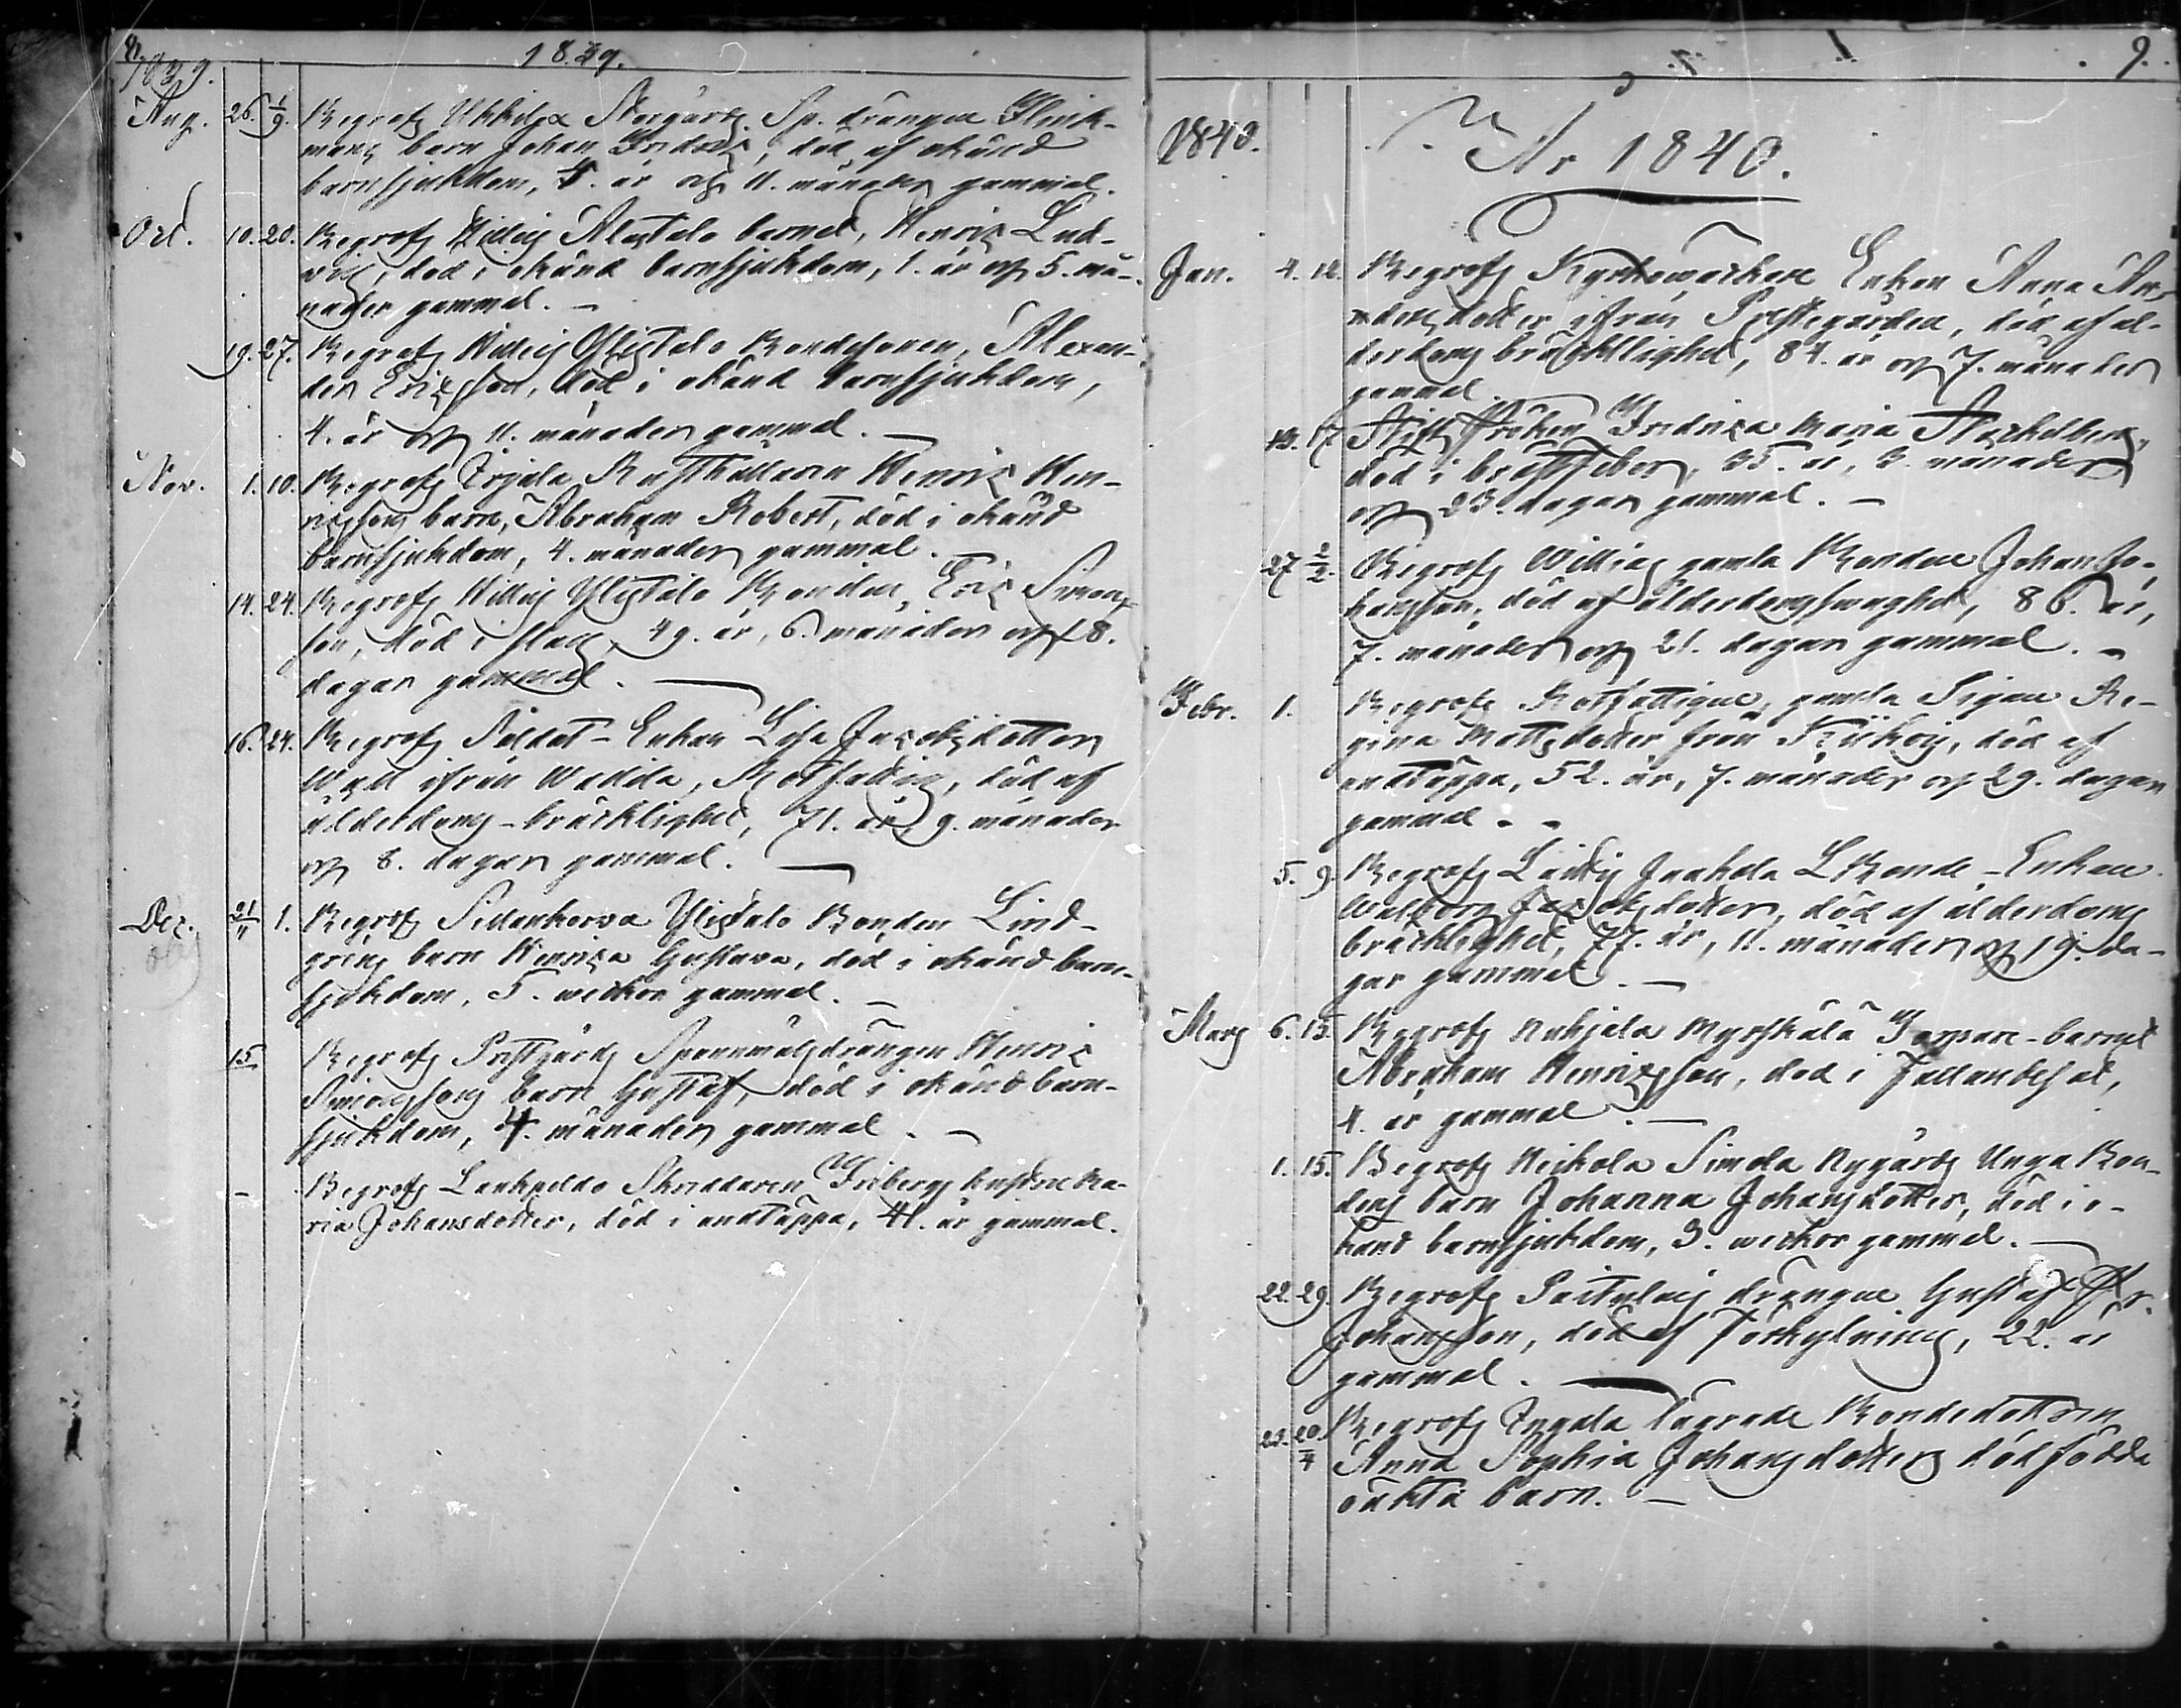 8.
1839.
1839.
Aug. 26. 1/9. Begrofs Uhkila Storgårds Sp. drängen Flink-
mans barn Johan Fredric, död af okänd
barnsjukdom, år och 11. månader gammal.
Oct. 10. 20. Begrofs Willis Alistalo barnet, Henric Lud-
vig, död i okänd barnsjukdom, 1. år och 5. må-
nader gammal. –
19. 27. Begrofs Willis Ylistalo Bondesonen, Alexan-
der Ericsson, död i okänd barnsjukdom,
4. år och 11. månader gammal. –
Nov. 1. 10. Begrofs Rusthållaren Henric Hen-
ricssons barn, Abraham Robert, död i okänd
barnsjukdom, 4. månader gammal.
14. 24. Begrofs Willis Ylistalo Bonden, Eric Simons-
son, död i slag, 49. år, 6. månader och 18.
dagar gammal. –
16. 24. Begrofs Soldat-Enkan Lisa Jacobsdotter
ifrån Wallila, Rotfattig, död af
ålderdoms-bräcklighet, 71. år, 9. månader
och 8. dagar gammal. –
Dec. 21/11 1. Begrofs Sillankorva Ylistalo Bonden Lind-
grens barn Henrica Gustava, död i okänd barn-
sjukdom, 5. weckor gammal. –
15. Begrofs Prestgårds Spannmålsdrängen Henric
Simonssons barn Gustaf, död i okänd barn-
sjukdom, 4. månader gammal. –
– Begrofs Lankpeldo Skräddaren Fribergs hustru Ma-
ria Johansdotter, död i andtäppa, 41. år gammal.
9.
1840.
År 1840.
Jan. 4. 12. Begrofs Kyrkowäktare Enkan Anna An-
dersdotter ifrån Prestegården, död af ål-
derdoms bräcklighet, 84. år och 7. månader
gammal.
13. 17. Fröken Fredrica Maria Stackelberg,
död i bröstfeber, 35. år, 3. månader
och 23. dagar gammal. –
27 2/2. Begrofs Willias gamla Bonden Johan Jo-
hansson, död af ålderdomsswaghet, 86. år,
7. månader och 21. dagar gammal. –
Febr. 1. Begrofs Rotfattiga, gamla Pigan Re-
gina Mattsdotter från Kiikois, död af
andtäppa, 52. år, 7. månader och 29. dagar
gammal. –
5. 9. Begrofs Jaakola Bonde-Enkan
Walborg Jacobsdotter, död af ålderdoms
bräcklighet, 77. år, 11. månader och 19. da-
gar gammal. –
Mars 6. 15. Begrofs Nuhjala Myrskälä Torpare-barnet
Abraham Henricsson, död i Fallandesot,
4. år gammal. –
1. 15. Begrofs Heickola Simola Nygårds Unga Bon-
dens barn Johanna Johansdotter, död i o-
känd barnsjukdom, 3. weckor gammal. –
22. 29. Begrofs drängen Gustaf
Johansson, död af Förkylning, 22. år
gammal. –
22. 20/4 Begrofs Bondedottren
Anna Sophia Johansdotters dödfödda
oäkta barn. –